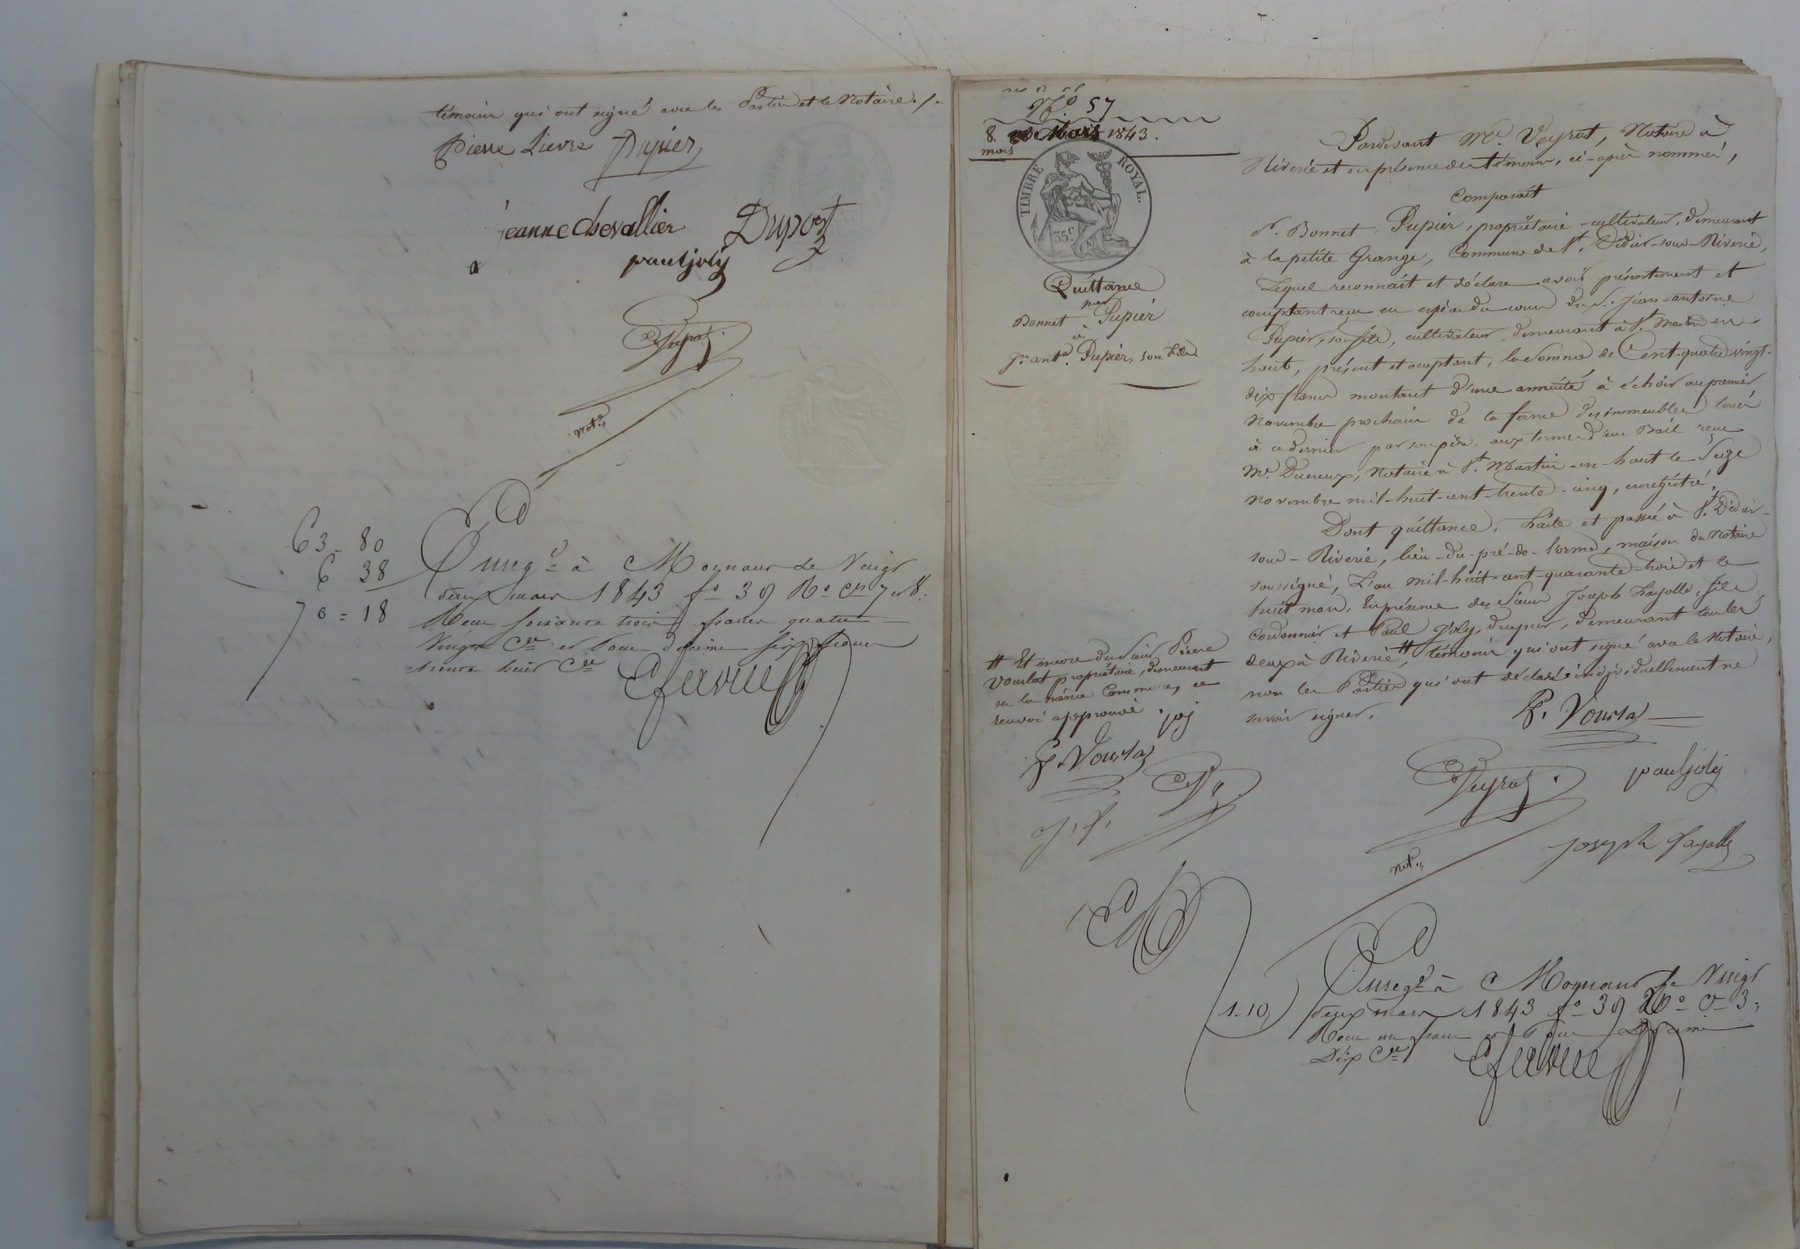 témoins qui ont signé avec les Parties et le Notaire ./.
Pierre Lievre Pupier
jeanne Chevallier Duport
paul joly
Not.re
63 = 80
6 38
70 = 18
Enreg.é à Mornant le Vingt
deux mars 1843 f.o 39 R.o C.es 7 et 8.
Reçu soixante trois francs quatre
Vingts C.es et pour décime six francs
trente huit C.es
N.o 57
8. Mars 1843.
mars
TIMBRE ROYAL.
35 c.
Quittance
par
Bonnet Pupier
à
J.n ant.e Pupier, son fils
Pardevant M.e Veyrat, Notaire à
Riverie et en présence des témoins, ci-après nommés,
Comparait
S.r Bonnet Pupier, propriétaire-cultivateur, demeurant
à la petite Grange, Commune de S.t Didier-sous-Riverie,
Lequel reconnait et déclare avoir présentement et
comptant reçu en espèces du cours du S.r Jean-antoine
Pupier, son fils, cultivateur, demeurant à S.t Martin en-
haut, présent et acceptant, la somme de Cent-quatre vingt-
dix francs montant d'une annuité à échoir au premier
Novembre prochain de la ferme des immeubles loués
à ce dernier par son père, aux termes d'un Bail reçu
M.e Ducreux, Notaire à S.t Martin-en-haut le Seize
Novembre mil-huit-cent-trente-cinq, enregistré,
Dont quittance. Faite et passée à S.t Didier-
sous-Riverie, lieu-du-pré-de-l'orme, maison du Notaire
soussigné, L'an mil-huit-cent-quarante-trois et le
huit mars, En présence des sieurs Joseph Fayolle, fils
Cordonnier et Paul Joly, drapier, demeurant tous les
deux à Riverie, # témoins qui ont signé avec le Notaire,
non les Parties qui ont déclaré individuellement ne
savoir signer.
# Et encore du sieur Pierre
Vourlat propriétaire, demeurant
en la même Commune, ce
renvoi approuvé. pj
P. Vourlat
J. f.
P. Vourlat
Veyrat paul joly
Not.re
Joseph Fayolle
1-10
Enreg.é à Mornant le Vingt
deux mars 1843 f.o 39 R.o C.e 3;
Reçu un franc et pour Décime
Dix C.es